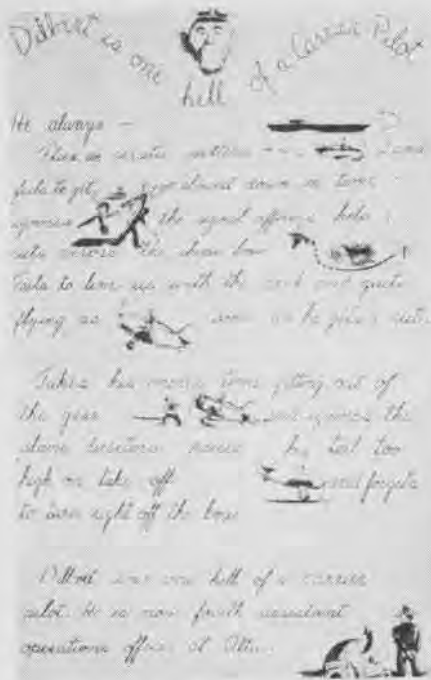 Dilbert is one hell of a Carrier Pilot
He always —
Flies an erratic pattern and
fails to get slowed down in time
ignores the signal officer's help
cuts across the
Fails to line up with the and quits
flying as soon as he gets a cut.
Takes his time getting out of
the gear and ignores the
plane directors raises his tail too
high on take off and forgets
to turn right off the bow
Dilbert was one hell of a carrier
pilot. He is now fourth assistant
operations officer at Attu.